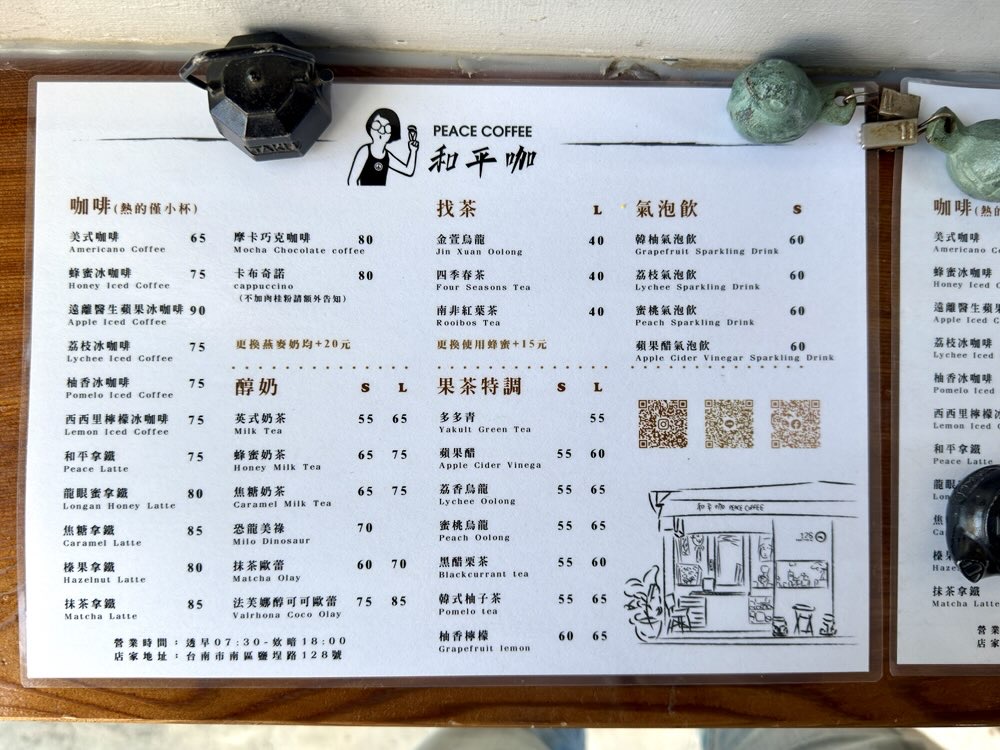 PEACE COFFEE
和平咖
咖啡(熱的僅小杯)
美式咖啡 65
Americano Coffee
蜂蜜冰咖啡 75
Honey Iced Coffee
遠離醫生蘋果冰咖啡 90
Apple Iced Coffee
荔枝冰咖啡 75
Lychee Iced Coffee
柚香冰咖啡 75
Pomelo Iced Coffee
西西里檸檬冰咖啡 75
Lemon Iced Coffee
和平拿鐵 75
Peace Latte
龍眼蜜拿鐵 80
Longan Honey Latte
焦糖拿鐵 85
Caramel Latte
榛果拿鐵 80
Hazelnut Latte
抹茶拿鐵 85
Matcha Latte
摩卡巧克咖啡 80
Mocha Chocolate coffee
卡布奇諾 80
cappuccino
(不加肉桂粉請額外告知)
更換燕麥奶均+20元
醇奶 S L
英式奶茶 55 65
Milk Tea
蜂蜜奶茶 65 75
Honey Milk Tea
焦糖奶茶 65 75
Caramel Milk Tea
恐龍美祿 70
Milo Dinosaur
抹茶歐蕾 60 70
Matcha Olay
法芙娜醇可可歐蕾 75 85
Valrhona Coco Olay
找茶 L
金萱烏龍 40
Jin Xuan Oolong
四季春茶 40
Four Seasons Tea
南非紅葉茶 40
Rooibos Tea
更換使用蜂蜜+15元
果茶特調 S L
多多青 55
Yakult Green Tea
蘋果醋 55 60
Apple Cider Vinega
荔香烏龍 55 65
Lychee Oolong
蜜桃烏龍 55 65
Peach Oolong
黑醋栗茶 55 60
Blackcurrant tea
韓式柚子茶 55 65
Pomelo tea
柚香檸檬 60 65
Grapefruit lemon
氣泡飲 S
韓柚氣泡飲 60
Grapefruit Sparkling Drink
荔枝氣泡飲 60
Lychee Sparkling Drink
蜜桃氣泡飲 60
Peach Sparkling Drink
蘋果醋氣泡飲 60
Apple Cider Vinegar Sparkling Drink
和平咖 PEACE COFFEE
128
營業時間：透早07:30-致暗18:00
店家地址：台南市南區鹽埕路128號
咖啡(熱的
美式咖啡
Americano C
蜂蜜冰咖啡
Honey Iced C
遠離醫生蘋果
Apple Iced C
荔枝冰咖啡
Lychee Iced
柚香冰咖啡
Pomelo Iced
西西里檸檬冰
Lemon Iced
和平拿鐵
Peace Latte
抹茶拿鐵
Matcha Latte
營業
店家